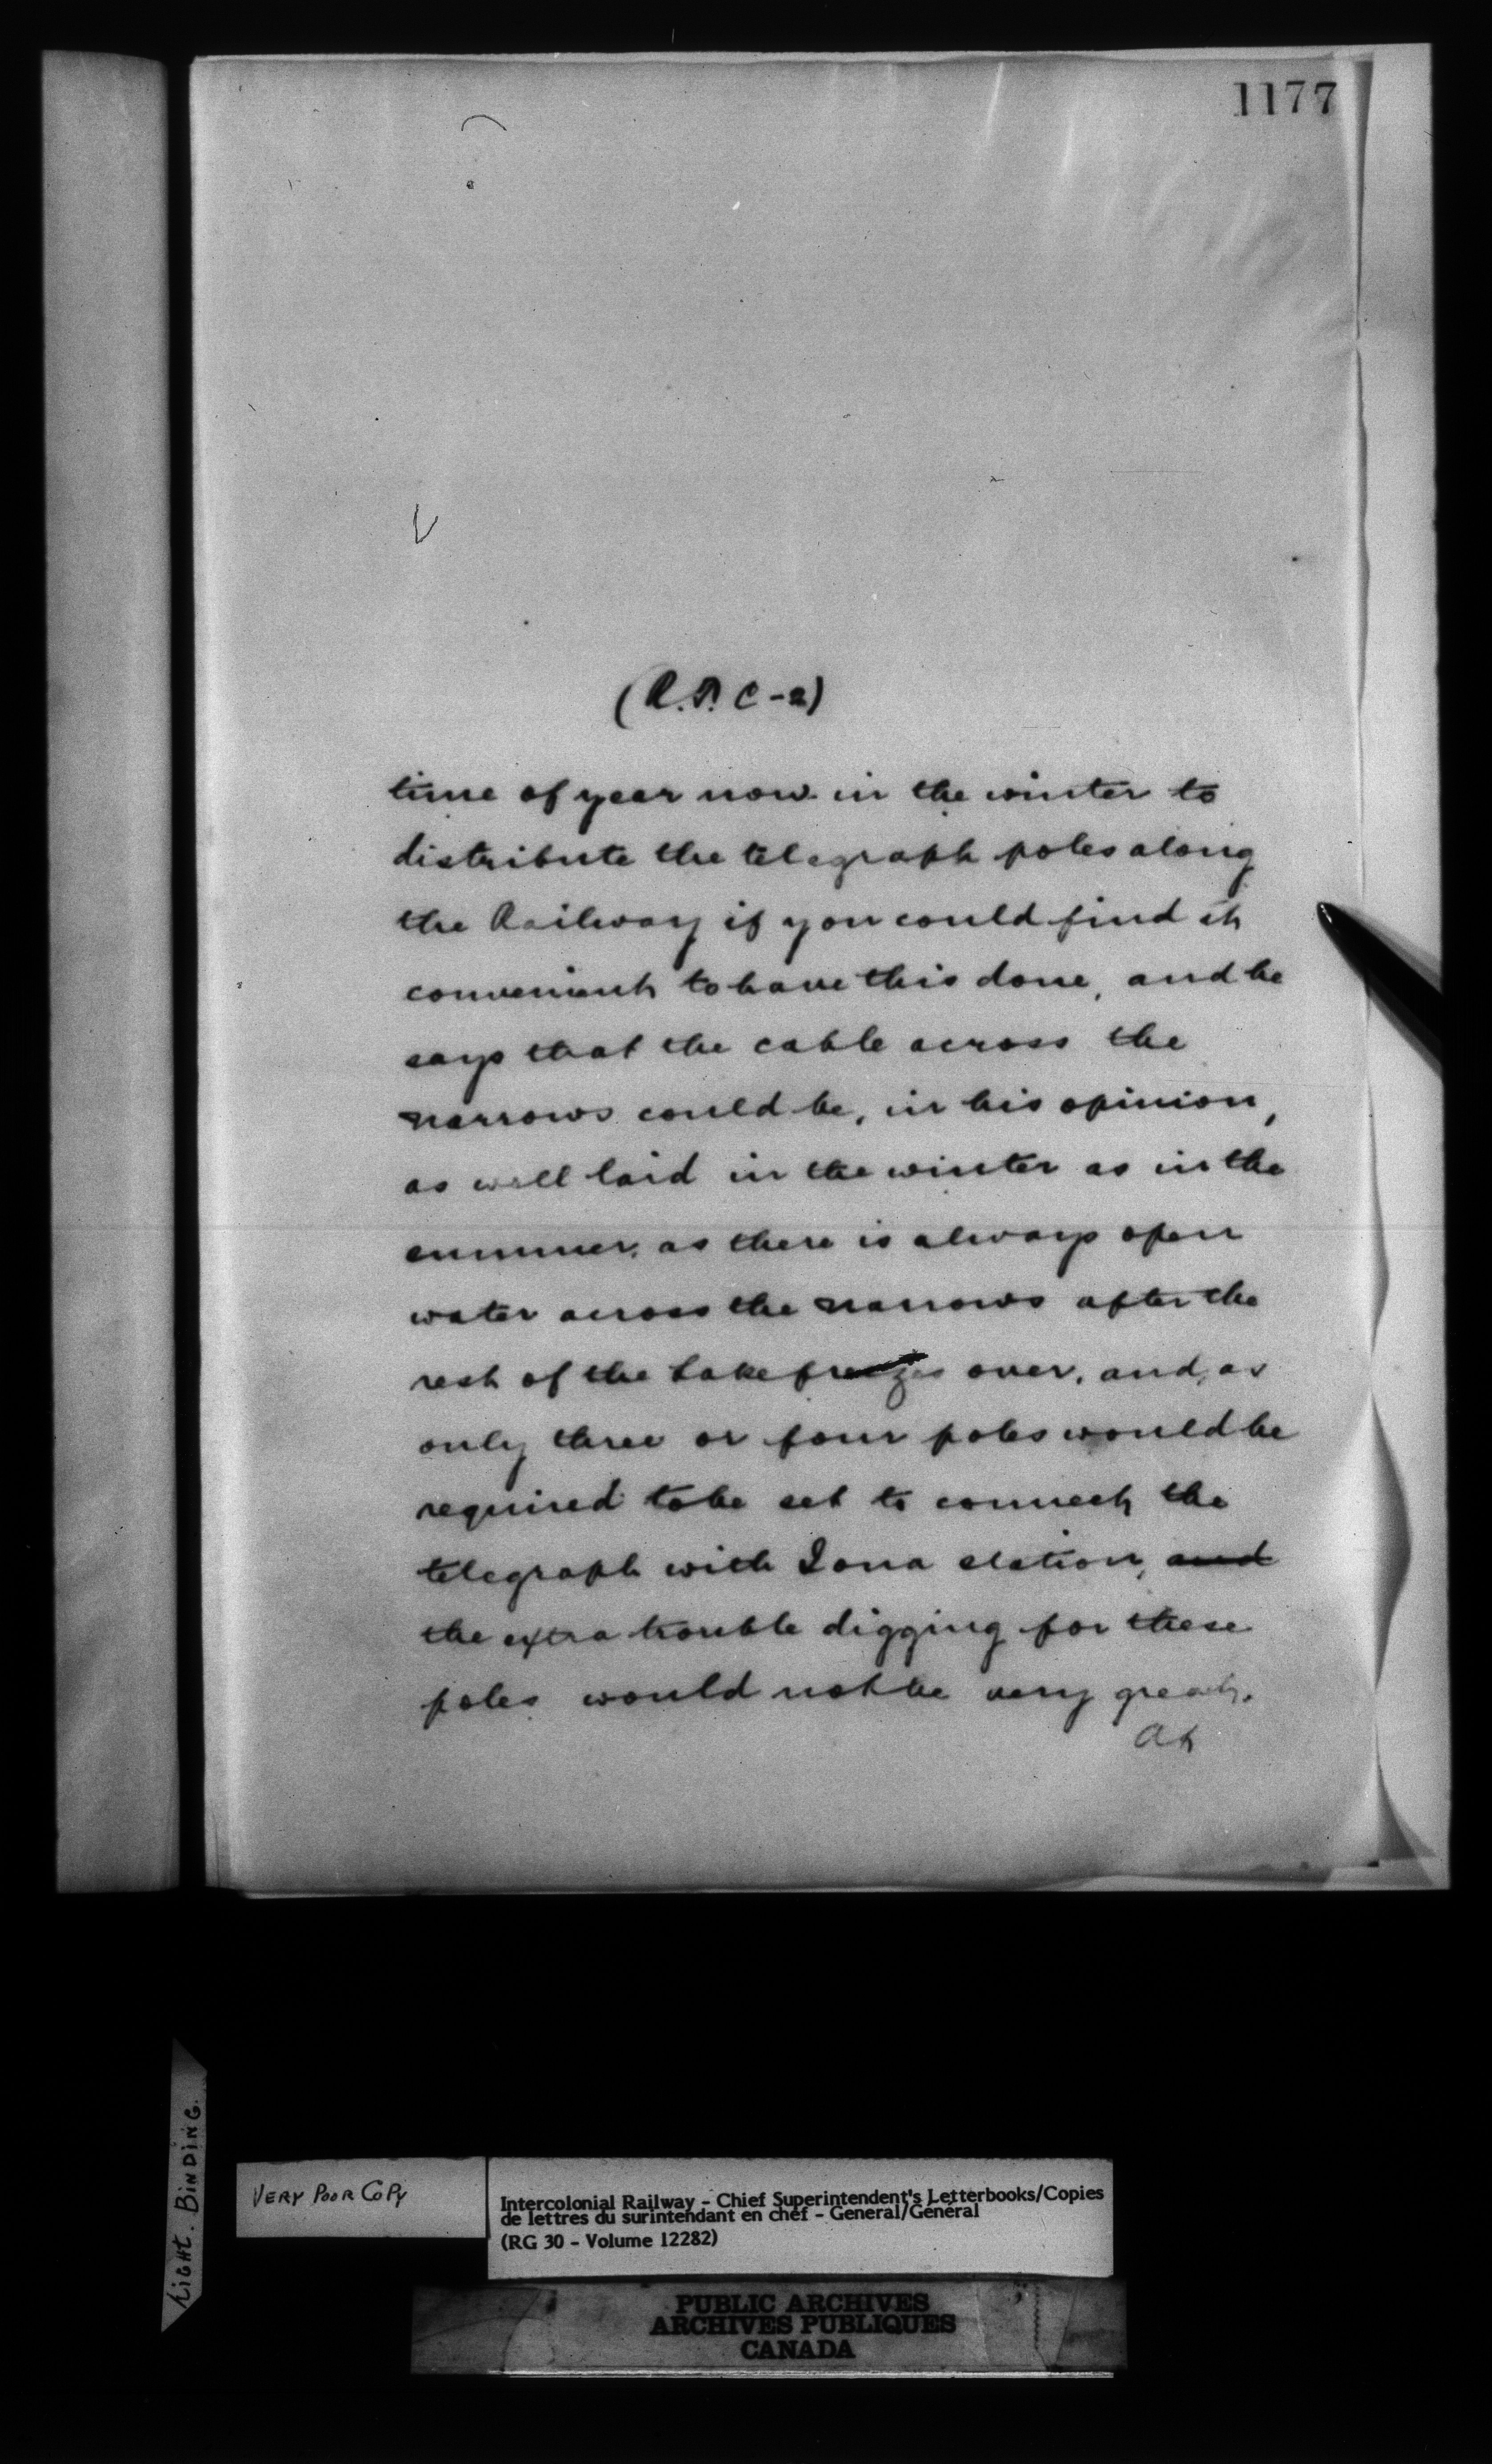 1177
(R.P. C-2)
time of year now in the winter to
distribute the telegraph poles along
the Railway if you could find it
convenient to have this done, and he
says that the cable across the
narrows could be, in his opinion,
as well laid in the winter as in the
summer, as there is always open
water across the narrows after the
rest of the Lake freezes over, and, as
only three or four poles would be
required to be set to connect the
telegraph with Iona station, and
the extra trouble digging for these
poles would not be very great.
At
LIGHT. BINDING.
VERY POOR COPY
Intercolonial Railway - Chief Superintendent's Letterbooks/Copies
de lettres du surintendant en chef - General/Général
(RG 30 - Volume 12282)
PUBLIC ARCHIVES
ARCHIVES PUBLIQUES
CANADA